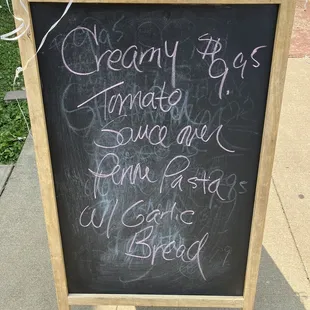 Creamy $9.95
Tomato
Sauce over
Penne Pasta
w/ Garlic
Bread